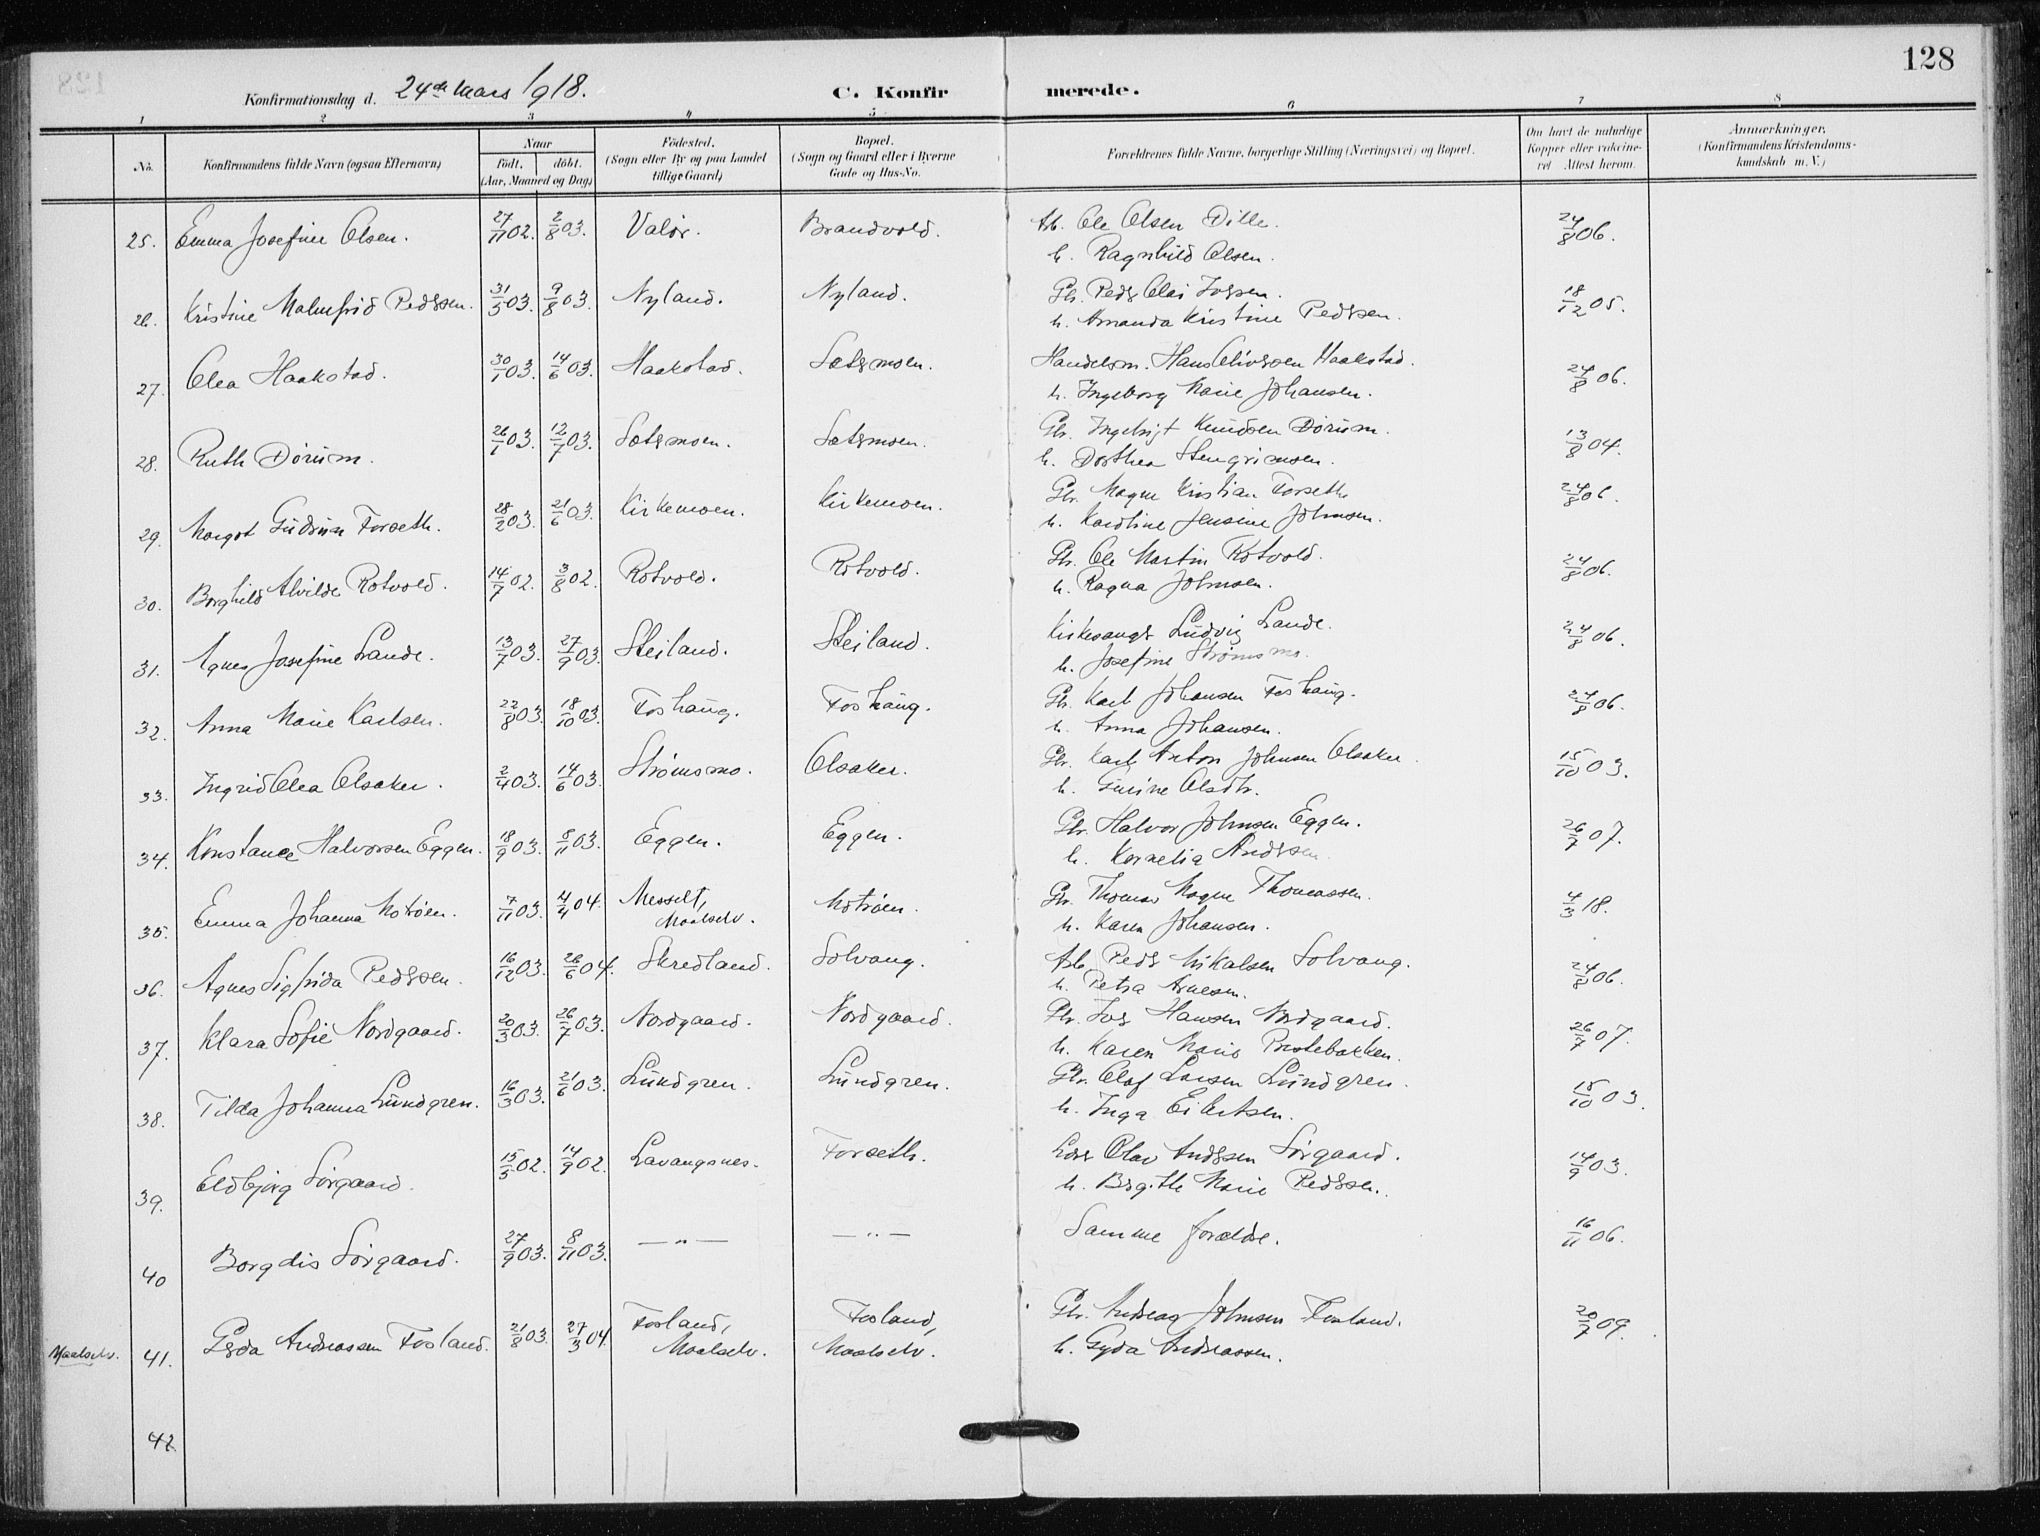 128
Konfirmationsdag d. 24de Mars 1918. C. Konfirmerede.
1 2 3 4 5 6 7 8
No. Konfirmandens fulde Navn (ogsaa Efternavn) Naar født. døbt. (Aar, Maaned og Dag) Fødested. (Sogn eller By og paa Landet tillige Gaard) Bopæl. (Sogn og Gaard eller i Byerne Gade og Hus-No. Forældrenes fulde Navne, borgerlige Stilling (Næringsvei) og Bopæl. Om havt de naturlige Kopper eller vaccineret Attest herom. Anmærkninger. (Konfirmandens Kristendomskundskab m. V.)
25. Emma Josefine Olsen. 27/11 02. 2/8 03. Valør. Brandvold. Arb. Ole Olsen Dille. 24/8 06.
h. Ragnhild Olsen.
26. Kristine Malmfrid Pedssen. 31/5 03. 9/8 03. Nyland. Nyland. Gbr. Peds Olai 18/12 05.
h. Amanda Kristine Pedssen.
27. Olea Haakstad. 30/1 03. 14/6 03. Haakstad. Sætsmoen. Handelsm. Hans Olivssen Haakstad. 24/8 06.
h. Ingeborg Marie Johansen.
28. Ruth Dørum. 26/1 03. 12/7 03. Sætsmoen. Sætsmoen. Gbr. Ingebrigt Knudsen Dørum. 13/8 04.
h. Dorthea Stengrimsen.
29. Margot Gudrun Forseth. 28/2 03. 21/6 03. Kirkemoen. Kirkemoen. Gbr. Magnu Kristian Forseth 24/8 06.
h. Karoline Jensine Johnsen.
30. Borghild Alvilde Rotvold. 14/7 02. 3/8 02. Rotvold. Rotvold. Gbr. Ole Martin Rotvold. 24/8 06.
h. Ragna Johnsen.
31. Agnes Josefine Lande. 13/7 03. 27/9 03. Steiland. Steiland. Kirkesangs Ludvig Lande. 24/8 06.
h. Josefine Strømsmo.
32. Anna Marie Karlsen. 22/8 03. 18/10 03. Foshaug. Foshaug. Gbr. Karl Johansen Foshaug. 24/8 06.
h. Anna Johansen.
33. Ingrid Olea Olsaker. 2/4 03. 14/6 03. Strømsmo. Olsaker. Gbr. Karl Anton Johnsen Olsaker. 15/10 03.
h. Gurine Olsdtr.
34. Konstance Halvorsen Eggen. 18/9 03. 8/11 03. Eggen. Eggen. Gbr. Halvor Johnsen Eggen. 26/7 07.
h. Kornelia Andssen.
35. Emma Johanna Motrøen. 7/11 03. 4/4 04. Messelt, Maalselv. Motrøen. Gbr. Thomas Magnu Thomassen. 4/3 18.
h. Karen Johansen.
36. Agnes Sigfrida Pedssen. 16/12 03. 26/6 04. Skredland. Solvang. Arb. Peds Mikalsen Solvang. 24/8 06.
h. Petra Arnesen.
37. Klara Sofie Nordgaard. 20/3 03. 26/7 03. Nordgaard. Nordgaard. Gbr. Hansen Nordgaard. 26/7 07.
h. Karen Marie Prestebakken.
38. Tilda Johanna Lundgren. 16/3 03. 21/6 03. Lundgren. Lundgren. Gbr. Olaf Larsen Lundgren. 15/10 03.
h. Inga Eilertsen.
39. Eldbjørg Sørgaard. 15/5 02. 14/9 02. Lavangsnes. Forseth. Olav Andssen Sørgaard. 14/9 03.
h. Birgithe Marie Pedssen.
40 Borgdis Sørgaard. 27/9 03. 8/11 03. — „ — — „ — Samme forældre. 16/11 06.
Maalselv. 41. Gyda Andreassen Fosland. 21/8 03. 27/3 04. Fosland, Maalselv. Fosland, Maalselv. Gbr. Andreas Johnsen Fosland. 20/7 09.
h. Gyda Andreassen.
42.